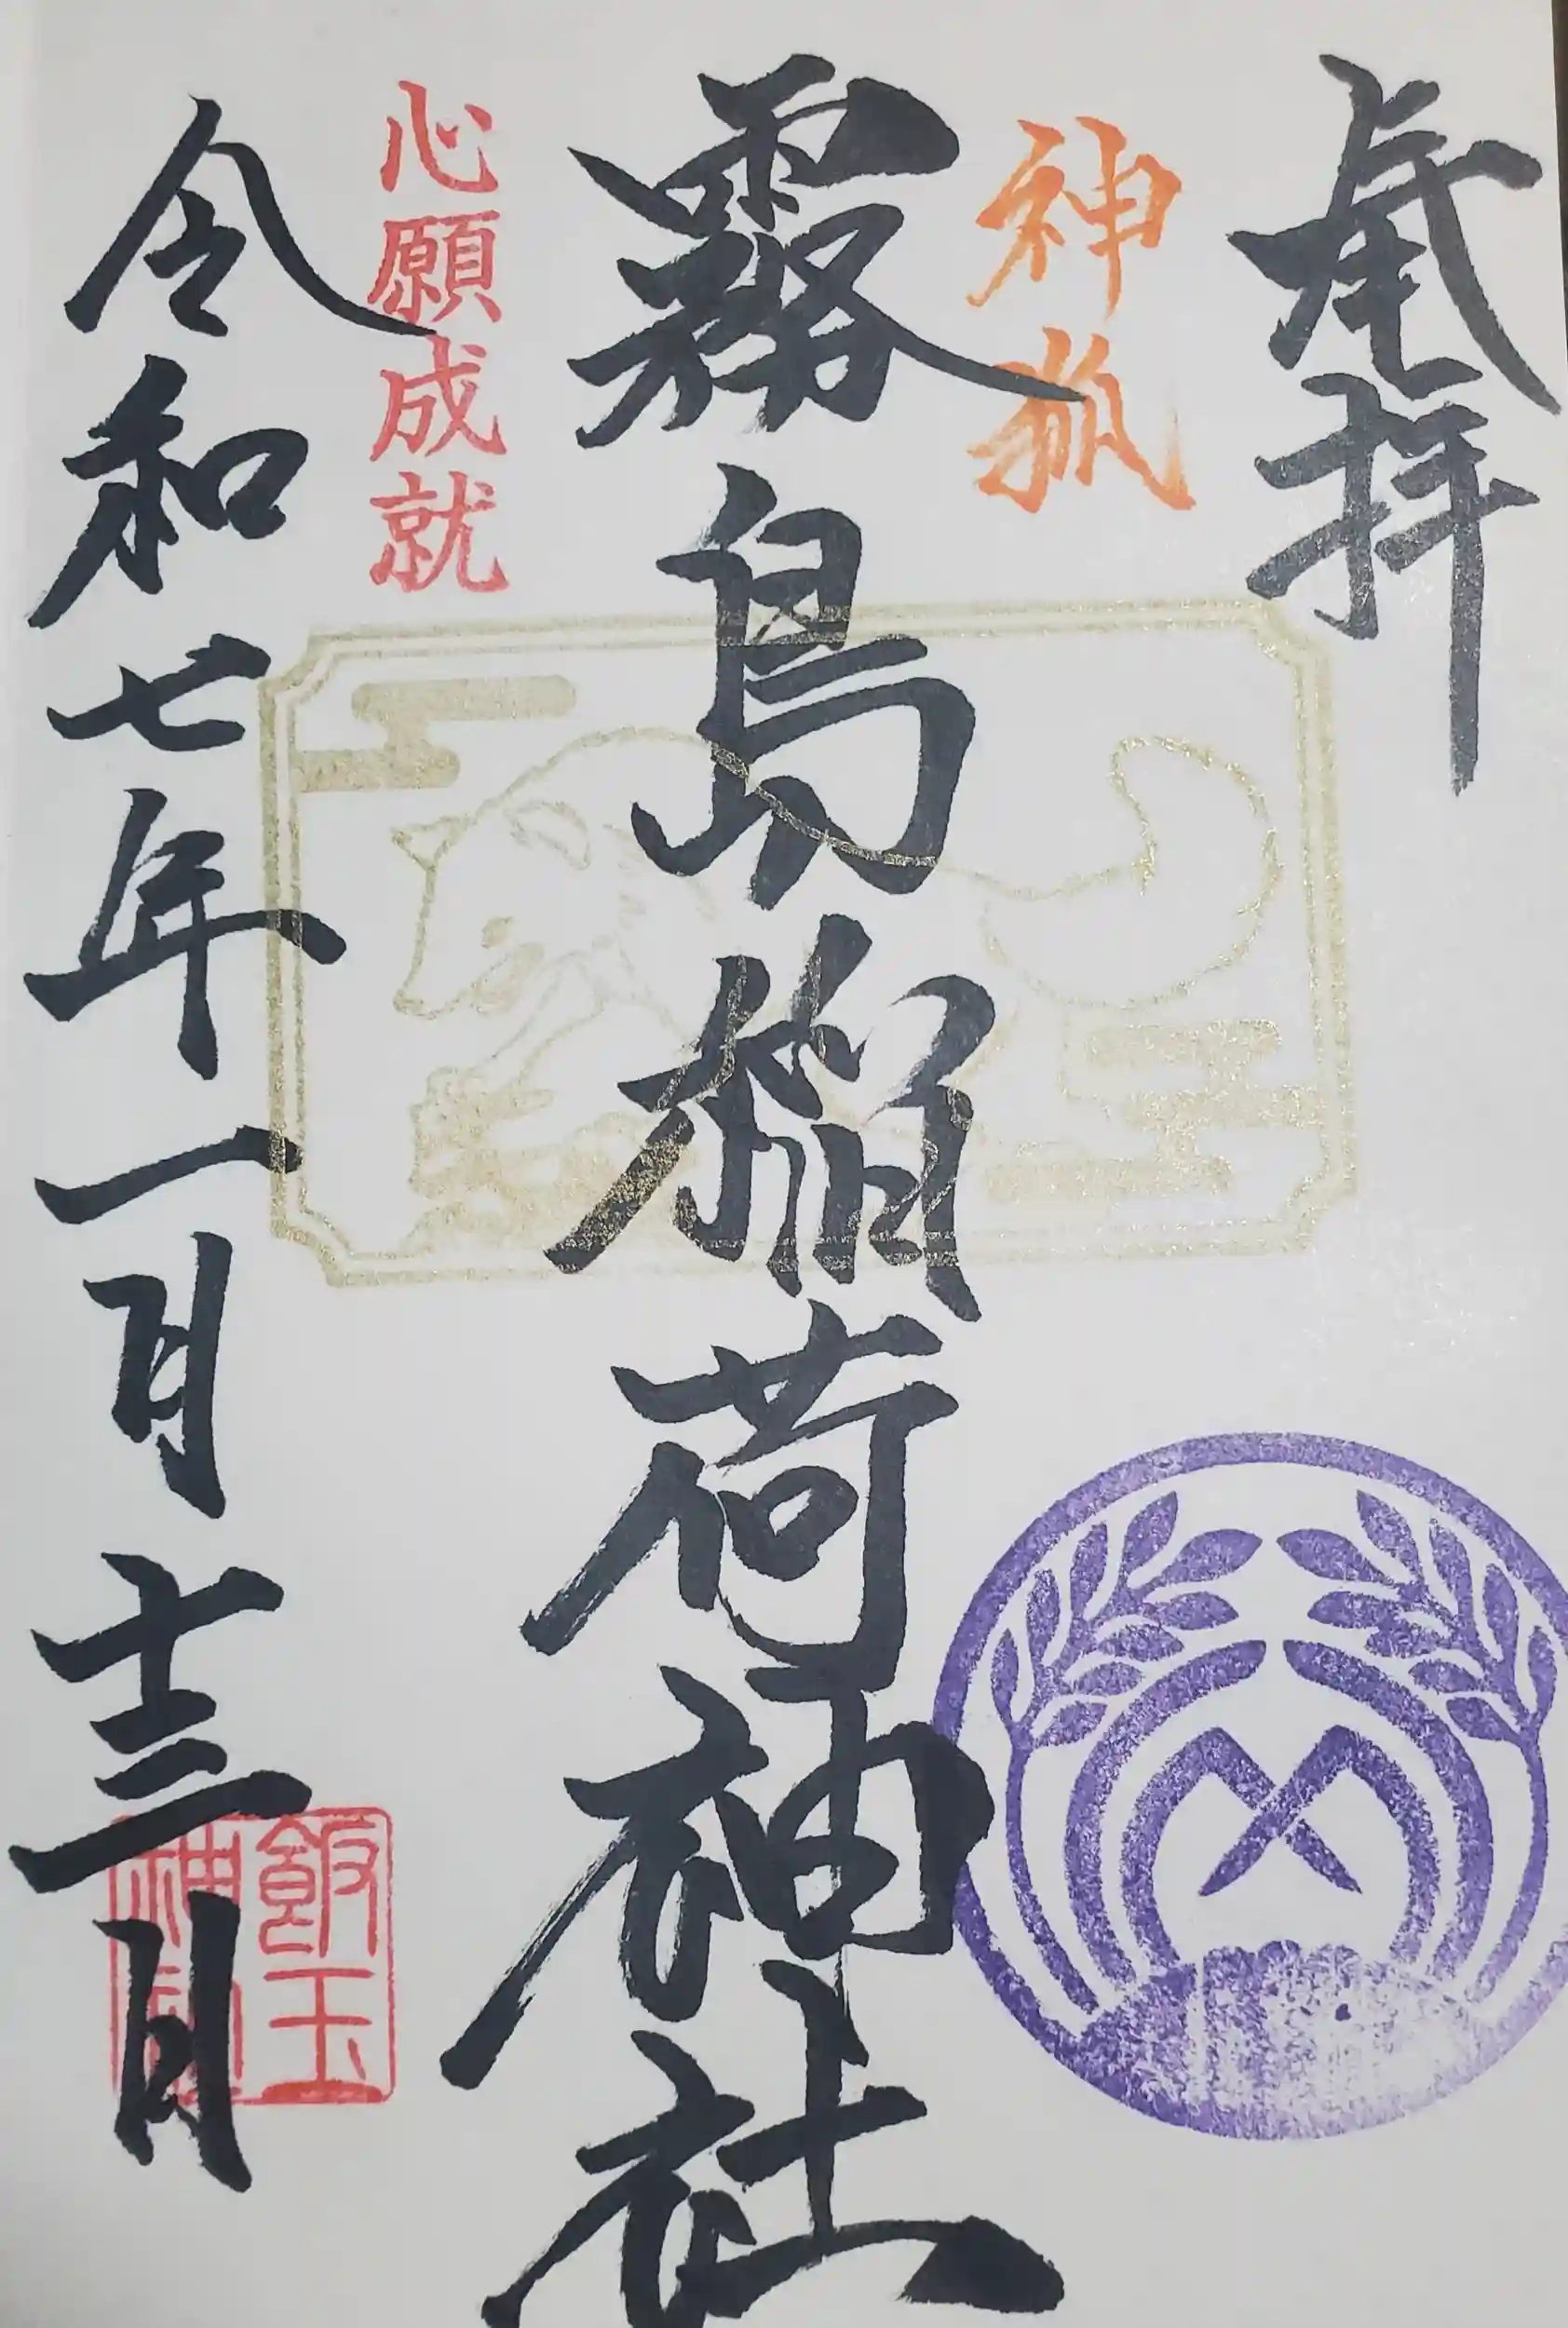 奉拝
神狐
霧島稲荷神社
心願成就
令和七年一月十三日
飯玉